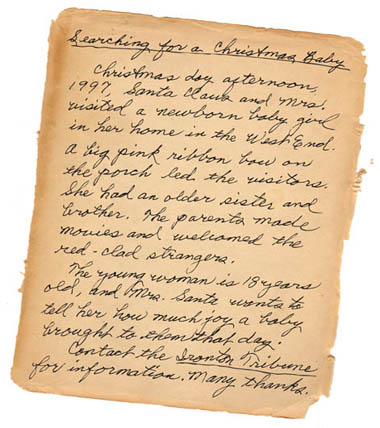 Searching for a Christmas Baby
Christmas day afternoon,
1997, Santa Claus and Mrs.
visited a newborn baby girl
in her home in the West End.
A big pink ribbon bow on
the porch led the visitors.
She had an older sister and
brother. The parents made
movies and welcomed the
red-clad strangers.
The young woman is 18 years
old, and Mrs. Santa wants to
tell her how much joy a baby
brought to them that day!
Contact the Ironton Tribune
for information. Many thanks.